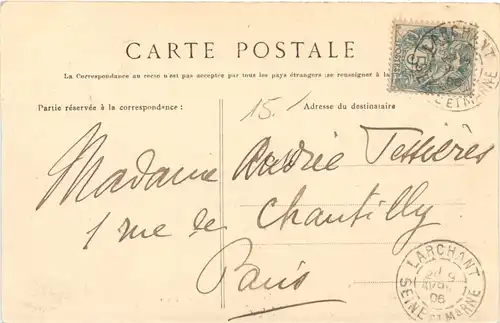 CARTE POSTALE
La Correspondance au recto n'est pas acceptée par tous les pays étrangers (se renseigner à la
Partie réservée à la correspondance :
Adresse du destinataire
15.
Madame Andrée Tessières
1 rue de Chantilly
Paris
LARCHANT
SEINE ET MARNE
LARCHANT
SEINE ET MARNE
08